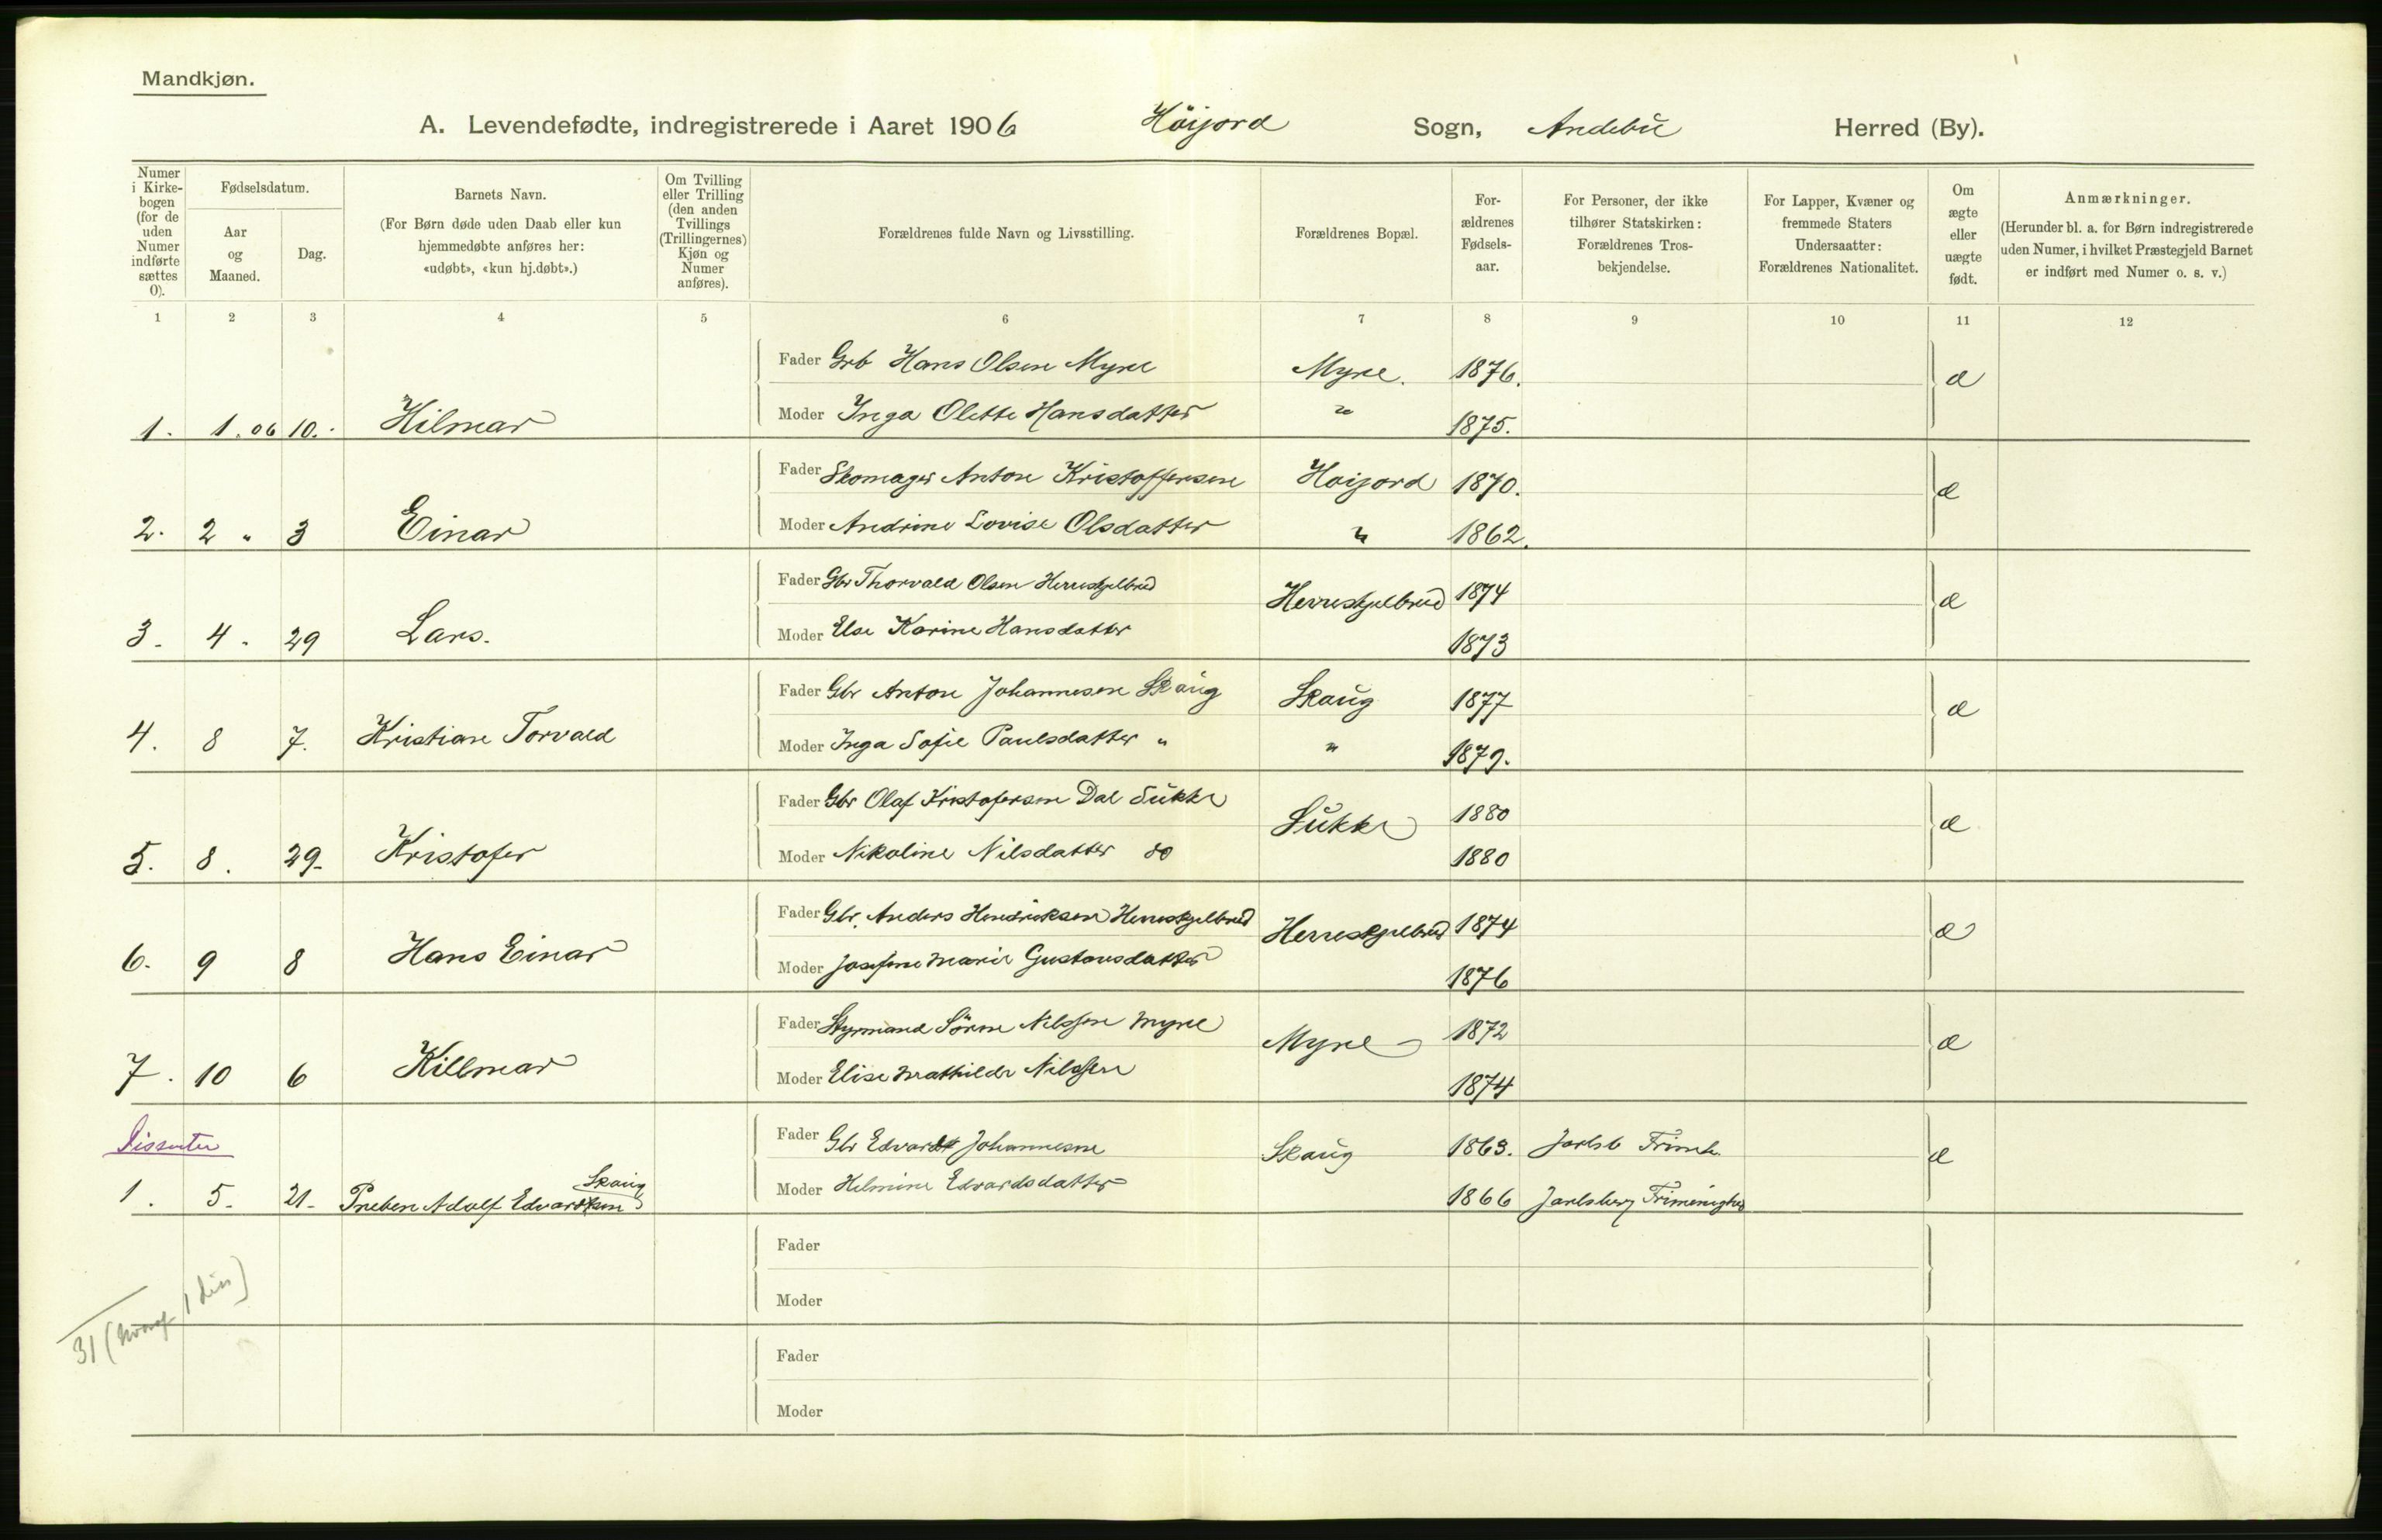 Mandkjøn.
A. Levendefødte, indregistrerede i Aaret 1906 Höijord Sogn, Andebu Herred (By).
Numer i Kirke-bogen (for de uden Numer indførte sættes 0).
Fødselsdatum.
Aar og Maaned.
Dag.
Barnets Navn.
(For Børn døde uden Daab eller kun hjemmedøbte anføres her: «udøbt», «kun hj.døbt».)
Om Tvilling eller Trilling (den anden Tvillings (Trillingernes) Kjøn og Numer anføres).
Forældrenes fulde Navn og Livsstilling.
Forældrenes Bopæl.
For-ældrenes Fødsels-aar.
For Personer, der ikke tilhører Statskirken: Forældrenes Tros-bekjendelse.
For Lapper, Kvæner og fremmede Staters Undersaatter: Forældrenes Nationalitet.
Om ægte eller uægte født.
Anmærkninger.
(Herunder bl. a. for Børn indregistrerede uden Numer, i hvilket Præstegjeld Barnet er indført med Numer o. s. v.)
1 2 3 4 5 6 7 8 9 10 11 12
Fader Grb Hans Olsen Myre Myre. 1876. æ
1. 1. 06 10. Hilmar Moder Inga Olette Hansdatter " 1875.
Fader Skomager Anton Kristoffersen Hoijord 1870. æ
2. 2 " 3 Einar Moder Andrine Lovise Olsdatter " 1862.
Fader Gbr Thorvald Olsen Herreskjelbred Herreskjelbred 1874 æ
3. 4. 29 Lars. Moder Else Karine Hansdatter 1873
Fader Gbr Anton Johannesen Skaug Skaug 1877 æ
4. 8 7. Kristian Torvald Moder Inga Sofie Paulsdatter " " 1879.
Fader Gbr Olaf Kristofersen Dal Sukke Sukke 1880 æ
5. 8. 29. Kristofer Moder Nikoline Nilsdatter do 1880
Fader Gbr. Anders Hendriksen Herreskjelbred Herreskjelbred 1874 æ
6. 9 8 Hans Einar Moder Josefine Marie Gustavsdatter 1876
Fader Styrmand Sören Nilssen Myre Myre 1872 æ
7. 10 6 Killmar Moder Elise Mathilde Nilssen 1874
Dissenter
Fader Gbr Edvardt Johannesen Skaug 1863. Jarlsb Frimh. æ
Skaug
1. 5. 21. Preben Adolf Edvardsen Moder Helmine Edvardsdatter 1866 Jarlsberg Frimenighed
Fader
Moder
31 ( 1 diss)
Fader
Moder